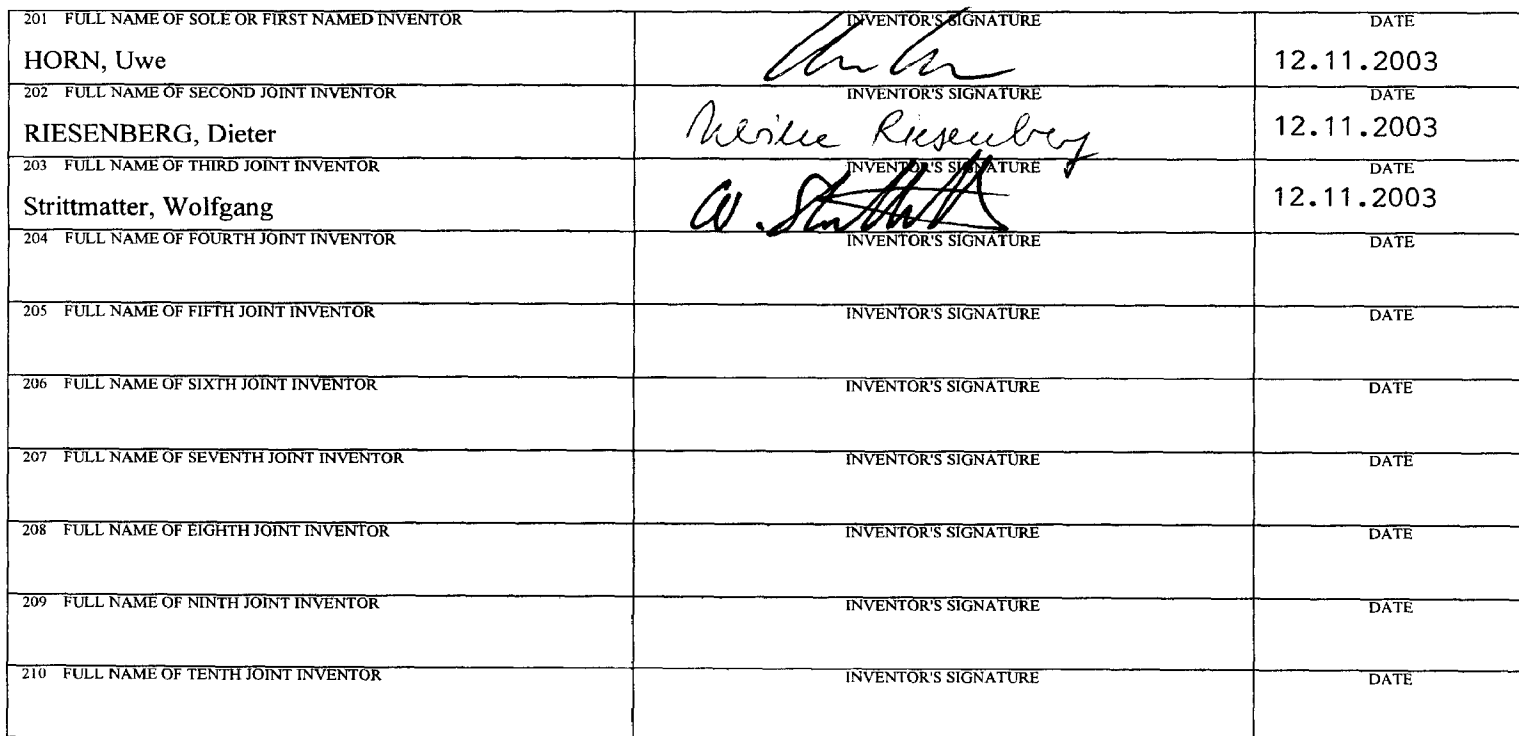 201 FULL NAME OF SOLE OR FIRST NAMED INVENTOR INVENTOR'S SIGNATURE DATE
HORN, Uwe 12.11.2003
202 FULL NAME OF SECOND JOINT INVENTOR INVENTOR'S SIGNATURE DATE
RIESENBERG, Dieter Riesenberg 12.11.2003
203 FULL NAME OF THIRD JOINT INVENTOR INVENTOR'S SIGNATURE DATE
Strittmatter, Wolfgang W. 12.11.2003
204 FULL NAME OF FOURTH JOINT INVENTOR INVENTOR'S SIGNATURE DATE
205 FULL NAME OF FIFTH JOINT INVENTOR INVENTOR'S SIGNATURE DATE
206 FULL NAME OF SIXTH JOINT INVENTOR INVENTOR'S SIGNATURE DATE
207 FULL NAME OF SEVENTH JOINT INVENTOR INVENTOR'S SIGNATURE DATE
208 FULL NAME OF EIGHTH JOINT INVENTOR INVENTOR'S SIGNATURE DATE
209 FULL NAME OF NINTH JOINT INVENTOR INVENTOR'S SIGNATURE DATE
210 FULL NAME OF TENTH JOINT INVENTOR INVENTOR'S SIGNATURE DATE